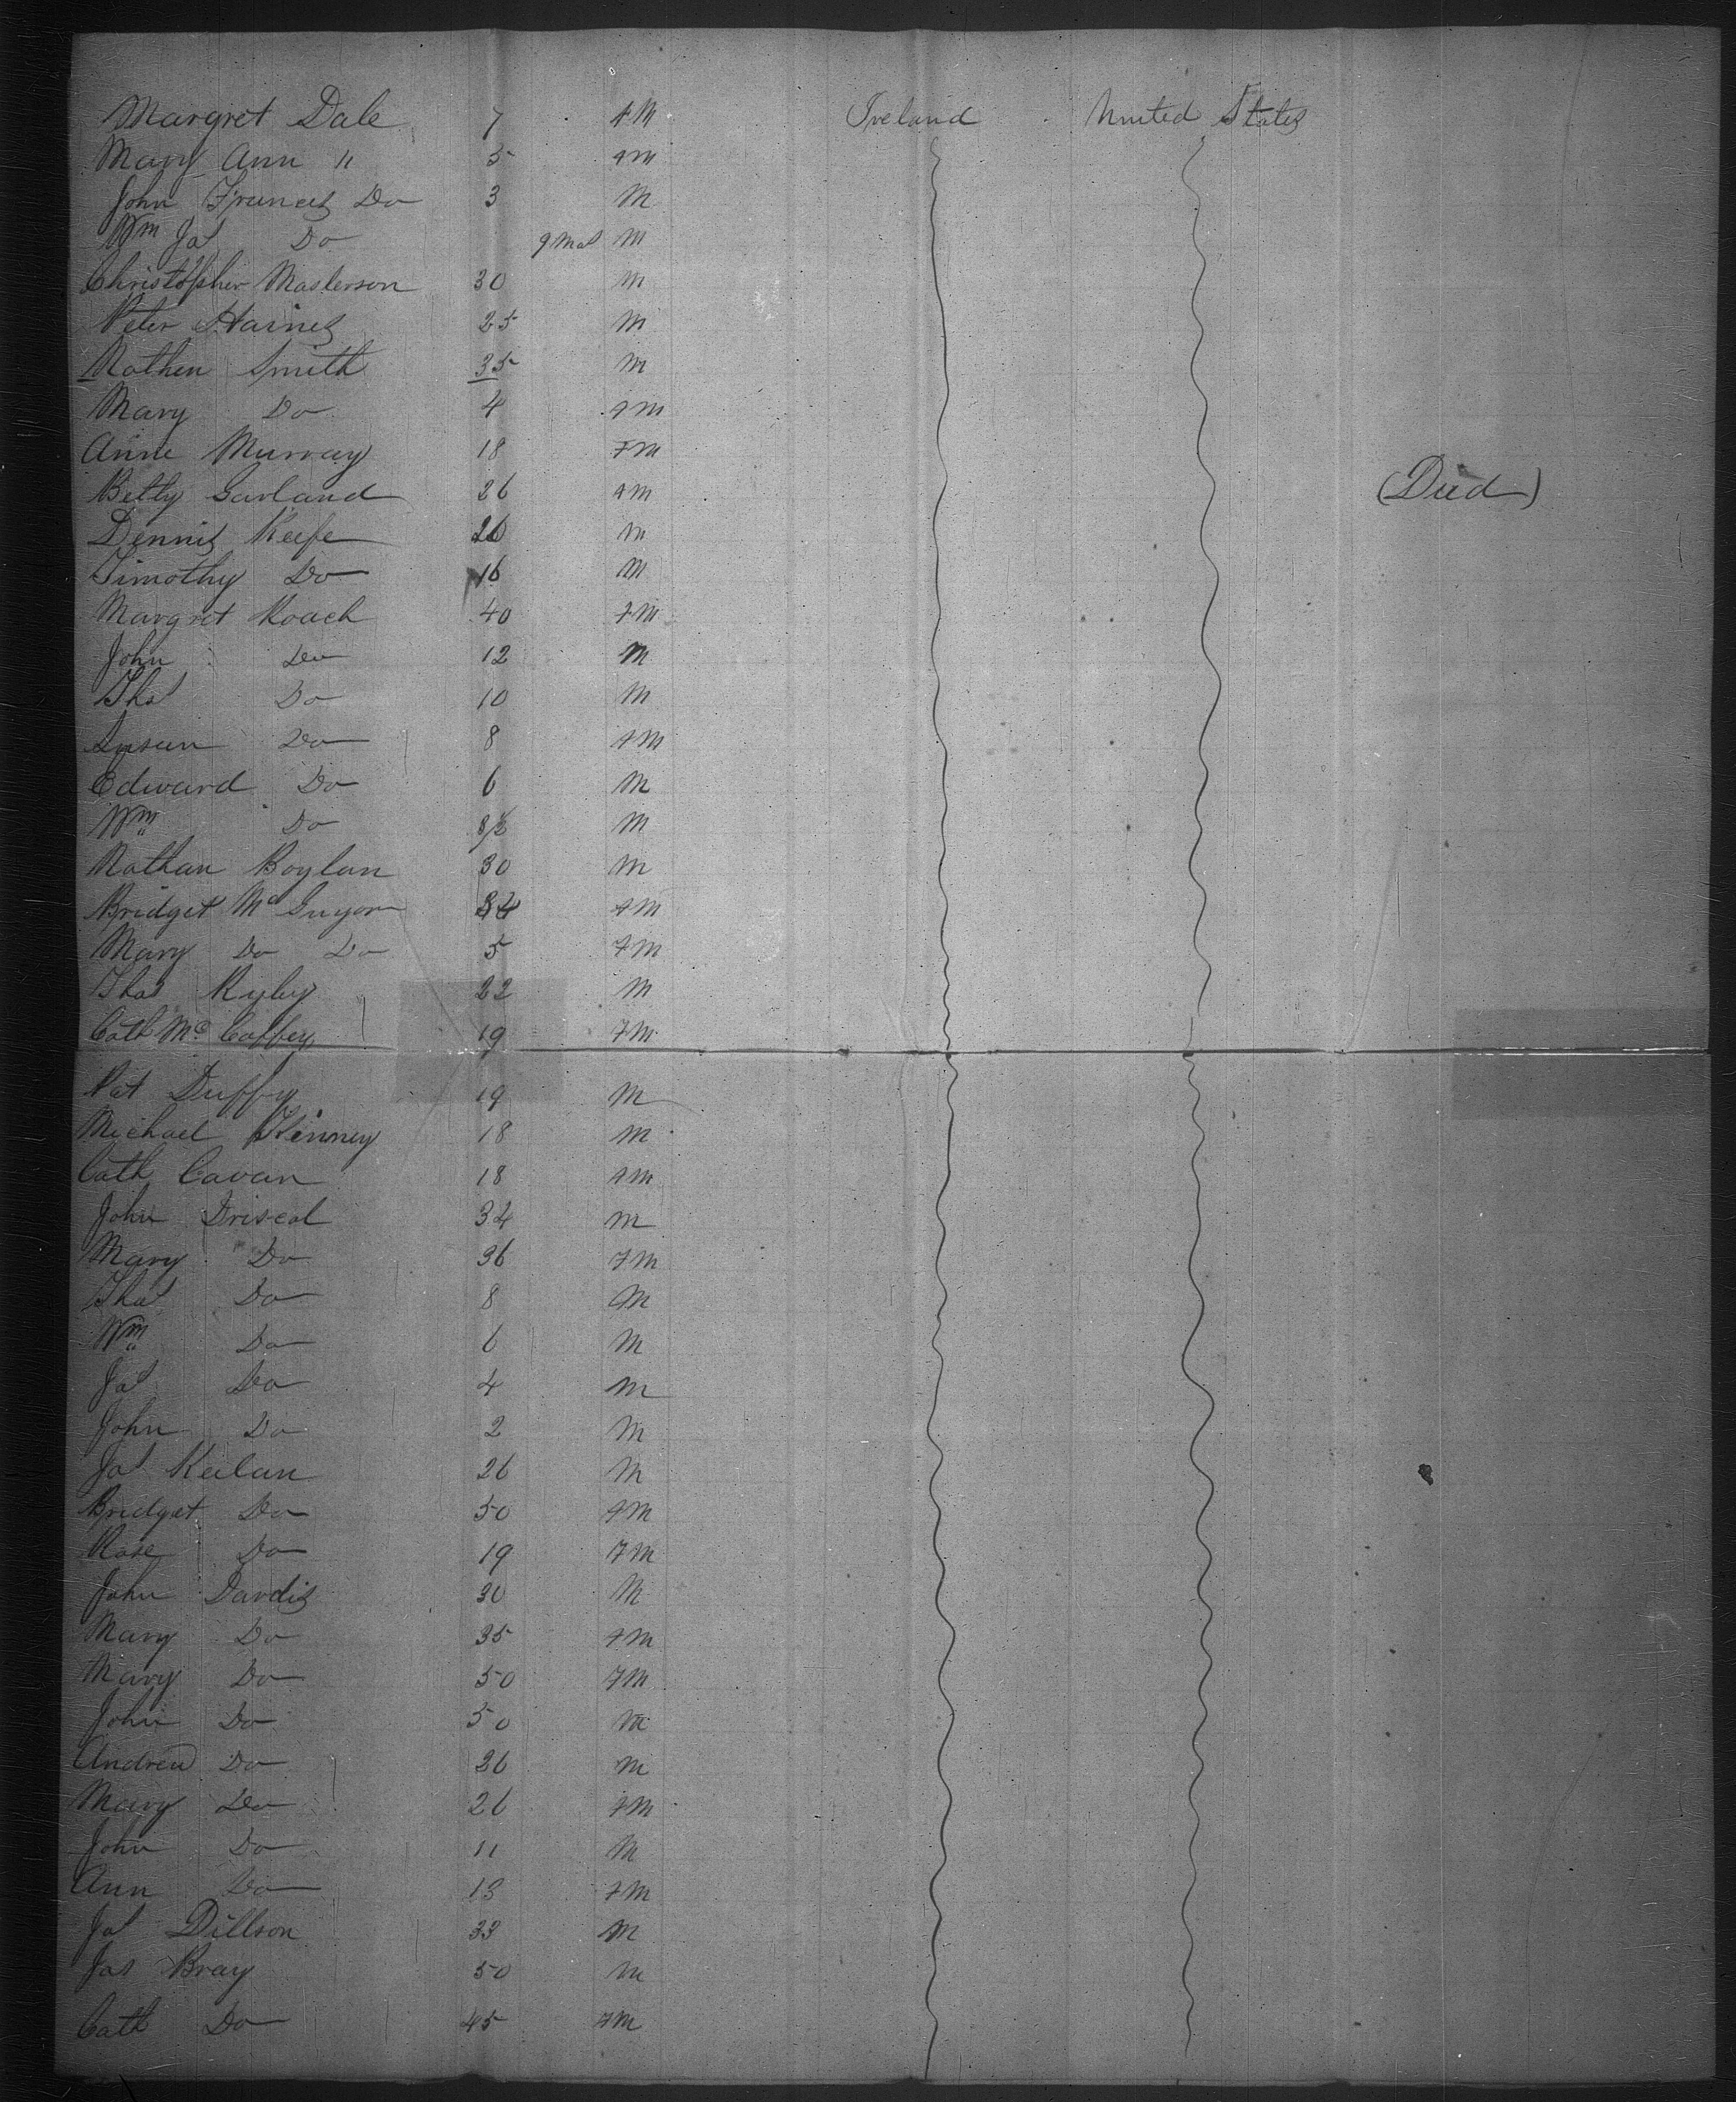 Margret Dale 7 FM Ireland United States
Mary Ann " 5 FM
John Frances Do 3 M
Wm Jas Do 9 Mos M
Christopher Masterson 30 M
Peter Haines 25 M
Nathen Smith 35 M
Mary Do 4 FM
Anne Murray 18 FM
Betty Garland 26 FM (Died)
Dennis Keefe 26 M
Timothy Do 16 M
Margret Roach 40 FM
John Do 12 M
Thos Do 10 M
Susan Do 8 FM
Edward Do 6 M
Wm Do M
Nathan Boylan 30 M
Bridget Mc 34 FM
Mary Do Do 5 FM
Thos Ryley 22 M
Cath Mc Caffey 19 FM
Pat Duffy 19 M
Michael Kinney 18 M
Cath Cavan 18 FM
John Driscol 34 M
Mary Do 36 FM
Thos Do 8 M
Wm Do 6 M
Jas Do 4 M
John Do 2 M
Jas Keelan 26 M
Bridget Do 50 FM
Rose Do 19 FM
John Dardis 30 M
Mary Do 35 FM
Mary Do 50 FM
John Do 50 M
Andrew Do 26 M
Mary Do 26 FM
John Do 11 M
Ann Do 13 FM
Jas Dillson 33 M
Jas Bray 50 M
Cath Do 45 FM